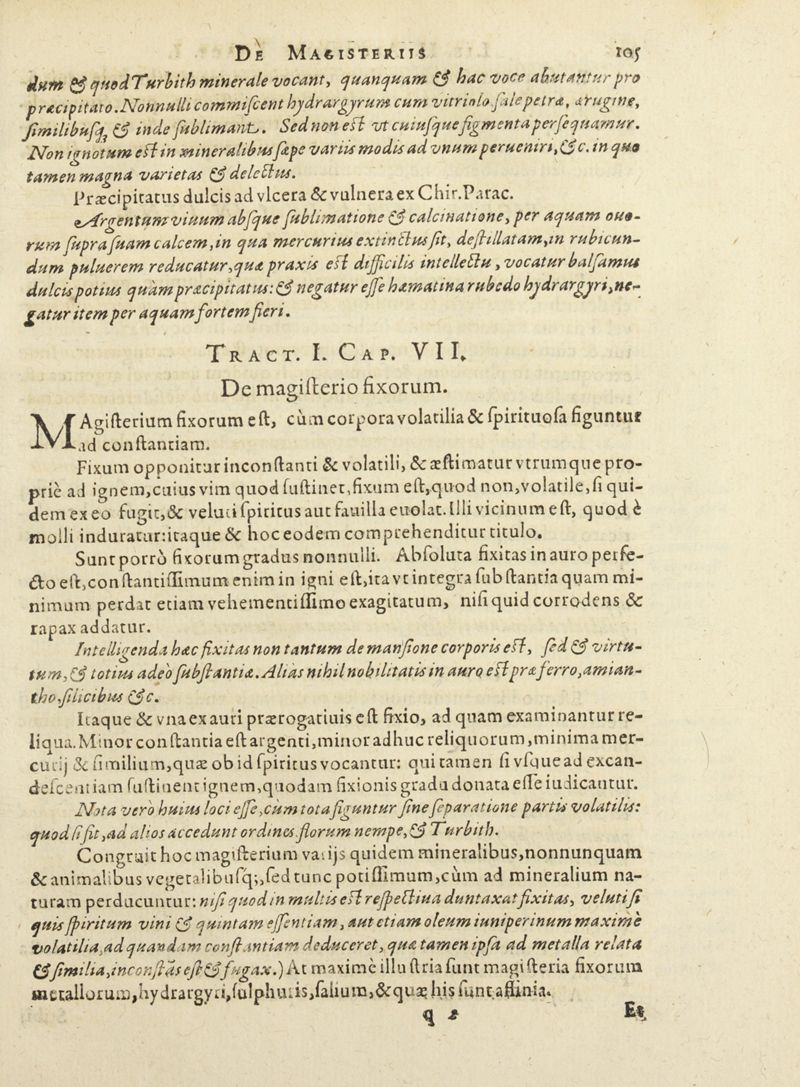 DE MAGISTERIIS 105
dum & quod Turbith minerale vocant, quanquam & hac voce abutantur pro
præcipitato. Nonnulli commiſcent hydrargyrum cum vitriolo, ſale petræ, ærugine,
ſimilibuſq, & inde ſublimant. Sed non eſt vt cuiuſque figmenta perſequamur.
Non ignotum eſt in mineralibus ſæpe variis modis ad vnum perueniri, &c. in quo
tamen magna varietas & delectus.
Præcipitatus dulcis ad vlcera & vulnera ex Chir. Parac.
Argentum viuum abſque ſublimatione & calcinatione, per aquam ouo-
rum ſupra ſuam calcem, in qua mercurius extinctus ſit, deſtillatam, in rubicun-
dum puluerem reducatur, quæ praxis eſt difficilis intellectu, vocatur balſamus
dulcis potius quàm præcipitatus: & negatur eſſe hæmatina rubedo hydrargyri, ne-
gatur item per aquam fortem fieri.
TRACT. I. CAP. VII.
De magiſterio fixorum.
MAgiſterium fixorum eſt, cùm corpora volatilia & ſpirituoſa figuntur
ad conſtantiam.
Fixum opponitur inconſtanti & volatili, & æſtimatur vtrumque pro-
priè ad ignem, cuius vim quod ſuſtinet, fixum eſt, quod non, volatile, ſi qui-
dem ex eo fugit, & veluti ſpiritus aut fauilla euolat. Illi vicinum eſt, quod è
molli induratur: itaque & hoc eodem comprehenditur titulo.
Sunt porrò fixorum gradus nonnulli. Abſoluta fixitas in auro perfe-
cto eſt, conſtantiſſimum enim in igni eſt, ita vt integra ſubſtantia quam mi-
nimum perdat etiam vehementiſſimo exagitatum, niſi quid corrodens &
rapax addatur.
Intelligenda hæc fixitas non tantum de manſione corporis eſt, ſed & virtu-
tum, & totius adeò ſubſtantiæ. Aliàs nihil nobilitatis in auro eſt præ ferro, amian-
tho, ſilicibus &c.
Itaque & vna ex auri prærogatiuis eſt fixio, ad quam examinantur re-
liqua. Minor conſtantia eſt argenti, minor adhuc reliquorum, minima mer-
curij & ſimilium, quæ ob id ſpiritus vocantur: qui tamen ſi vſque ad excan-
deſcentiam ſuſtinent ignem, quodam fixionis gradu donata eſſe iudicantur.
Nota vero huius loci eſſe, cùm tota figuntur ſine ſeparatione partis volatilis:
quod ſi fit, ad alios accedunt ordines, florum nempe, & Turbith.
Congruit hoc magiſterium varijs quidem mineralibus, nonnunquam
& animalibus vegetalibuſq;, ſed tunc potiſſimum, cùm ad mineralium na-
turam perducuntur: niſi quod in multis eſt reſpectiua duntaxat fixitas, veluti ſi
quis ſpiritum vini & quintam eſſentiam, aut etiam oleum iuniperinum maximè
volatilia, ad quandam conſtantiam deduceret, quæ tamen ipſa ad metalla relata
& ſimilia, inconſtãs eſt & fugax.) At maximè illuſtria ſunt magiſteria fixorum
metallorum, hydrargyri, ſulphuris, ſalium, & quæ his ſunt affinia.
q 2 Et